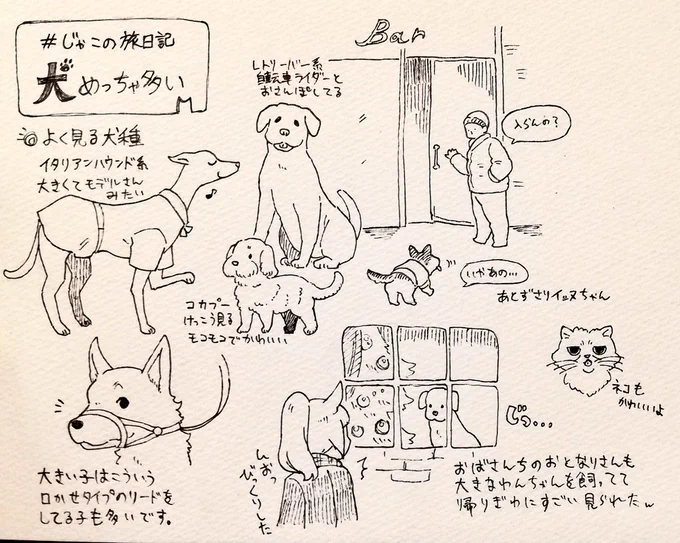 #じゃこの旅日記
犬めっちゃ多い
よく見る犬種
イタリアンハウンド系
大きくてモデルさん
みたい
レトリーバー系
自転車ライダーと
おさんぽしてる
Bar
入らんの?
いやあの…
あとずさりイッヌちゃん
コカプー
けっこう見る
モコモコでかわいい
ネコも
かわいいよ
大きい子はこういう
口かせタイプのリードを
してる子も多いです。
しおっ
びっくりした
じっ…
おばさんちのおとなりさんも
大きなわんちゃんを飼ってて
帰りぎわにすごい見られたw